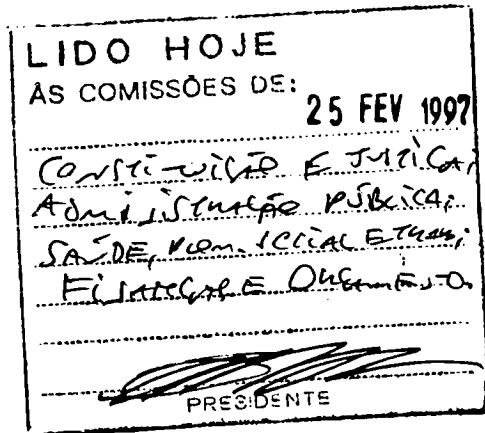 LIDO HOJE
ÀS COMISSÕES DE:
25 FEV 1997
CONSTITUIÇÃO E JUSTIÇA;
ADMINISTRAÇÃO PÚBLICA;
SAÚDE, PROM. SOCIAL E TRAB;
FINANÇAS E ORÇAMENTO.
PRESIDENTE